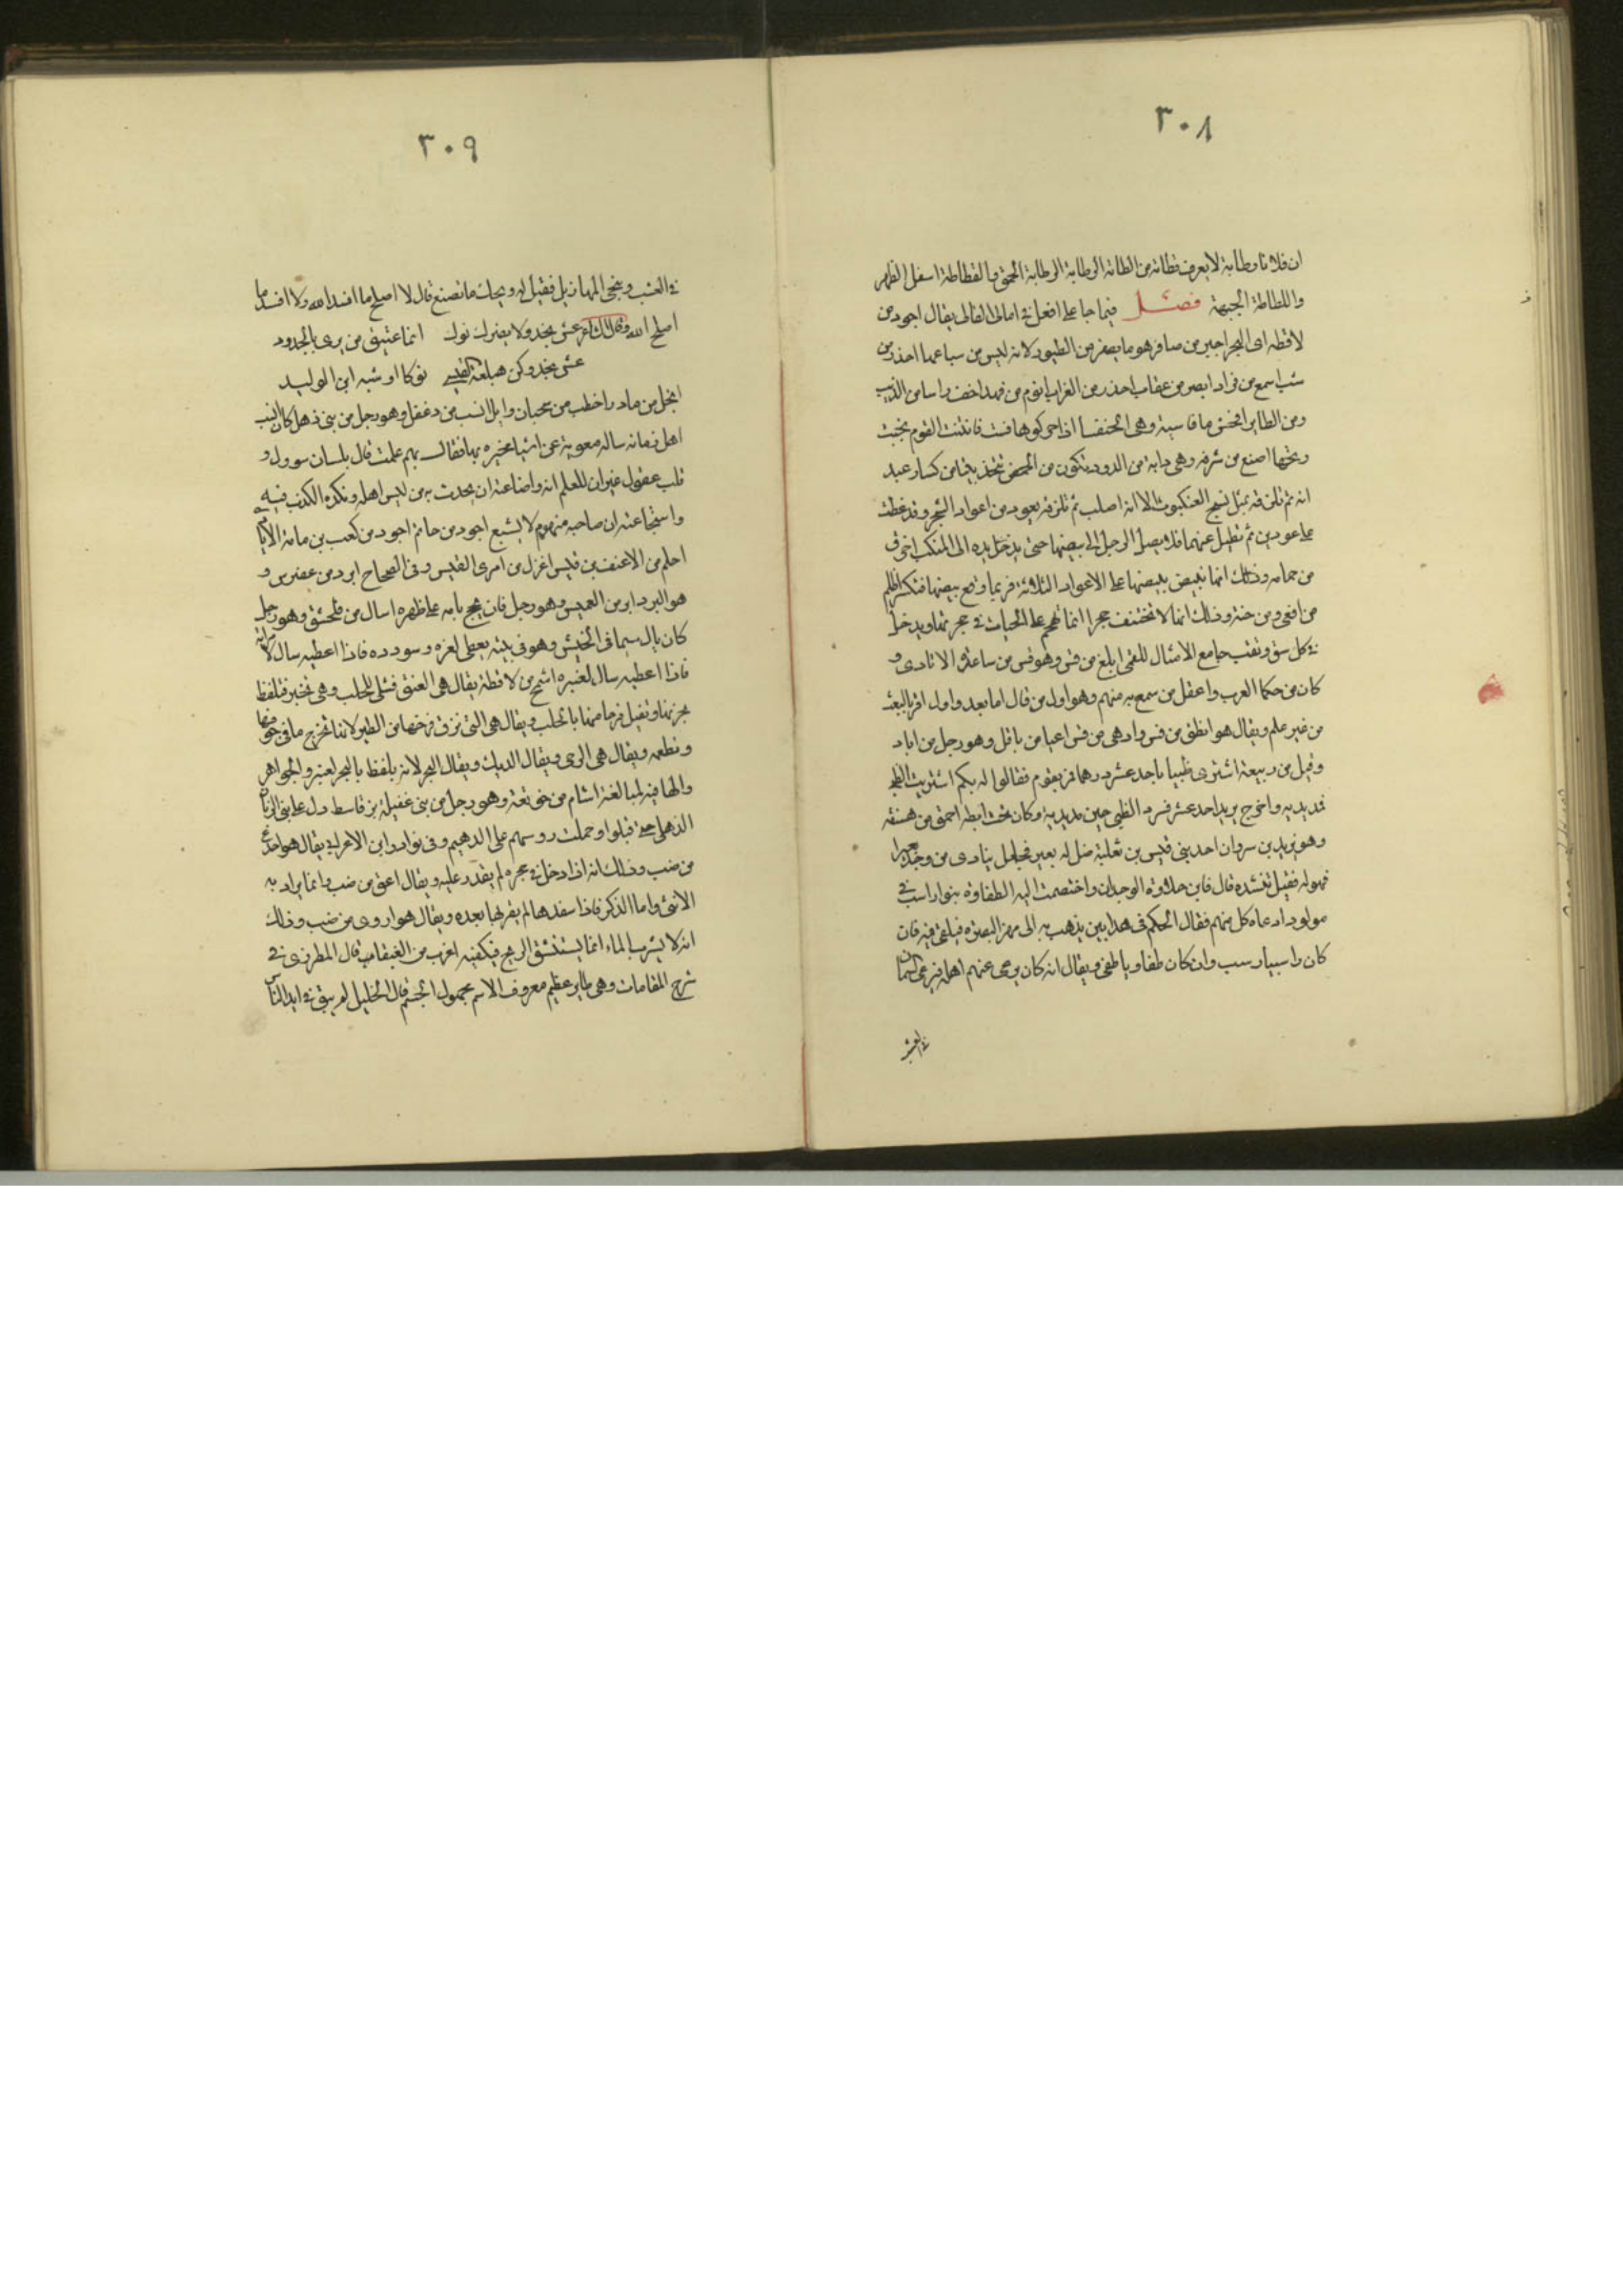 ٣٠٨
ان فلانا وطابة لا يعرف قطانه من لطانه الرطابة الرطابة الحمق والقطاطة اسفل الظهر
واللطاطة الجبهة فصل فيما جا على افعل في امالى القالى يقال اجود من
لافظه اى البحر اجبن من صافر هو ما يصفر من الطيور لانه ليس من سباعها احذر من
اسمع من قراد ابصر من عقاب احذر من الغراب انوم من فهد اخف راسا من الذيب
ومن الطاير افحش من فاسية وهى الخنفسا اذا حركوها فست فانتنت القوم بخبث
ريحها اصنع من شرفه وهى دابة من الدود تكون من الحمض تتخذ بيتا من كسار عيد
انه ثم تلزقه بمثل نسج العنكبوت الا انه اصلب ثم تلزقه بعود من اعواد الشجر وقد غطت
من حمامه وذلك انها تبيض بيضها على الاعواد الثلاثة فربما وقع بيضها فتكسر اظلم
من افعى ومن حية وذلك انها لا تحتفر جحرا انما تهجم على الحيات في جحرتها ويدخل
في كل شق وثقب جامع الامثال للقمى ابلغ من قس وهو قس من ساعدة الايادى و
كان من حكما العرب واعقل من سمع به منهم وهو اول من قال اما بعد واول اقر بالبعث
من غير علم ويقال هو انطق من قس وادهى من قس اعيا من باقل وهو رجل من اياد
وقيل من ربيعة اشترى ظبيا باحد عشر درهما فمر بقوم فقالوا له بكم اشتريت الظبى
فمد يديه واخرج يريد احد عشر فشرد الظبى حين مد يديه وكان تحت ابطه احمق من هبنقه
وهو يزيد بن سروان احد بنى قيس بن ثعلبة ضل له بعير فجعل ينادى من وجد بعيرا
فهو له فقيل تنشده قال فاين حلاوة الوجدان واختصمت اليه الطفاوة بنو راسب في
مولود ادعاه كل منهم فقال الحكم في هذا بين يذهب به الى نهر البصره فيلقى فيه فان
كان راسبيا رسب وان كان طفاويا طفى ويقال انه كان يرعى غنم اهله فيرعى السمان
في العشب
٣٠٩
في العشب وينحى المهازيل فقيل له ويحك ما تصنع قال لا اصلح ما افسد الله ولا افسد ما
اصلح الله وقال الشاعر عش بجد ولا يضرك نوك انما عيش من يرى بالجدود
عش بجد وكن هبنقة القيسى نوكا او شيبه ابن الوليد
ابخل من مادر اخطب من سحبان وايل انسب من دغفل وهو رجل من بنى ذهل كان انسب
اهل زمانه ساله معوية عن اشيا فخبره بها فقال بم علمت قال بلسان سوول و
قلب عقول غير ان للعلم افة واضاعته ان يحدث به من ليس اهله ونكده الكذب فيه
واستجاعته ان صاحبه منهوم لا يشبع اجود من حاتم اجود من كعب بن مامة الايا
احلم من الاحنف بن قيس اغزل من امرى القيس وفى الصحاح ابرد من عضرس و
هو البرد ابر من العميس وهو رجل كان يحج بامه على ظهره اسال من فلحس وهو رجل
كان يال سهما في الجيش وهو في بيته يعطى لعزه وسودده فاذا اعطيه سال لامراته
فاذا اعطيه سال لبعيره اسمح من لافظة يقال هى العنز تشلى للحلب وهى تجتر فتلفظ
بجرتها وتقبل فرحا منها بالحلب ويقال هى التى تزق فرخها من الطير لانها تخرج ما في جوفها
وتطعمه ويقال هى الرحى ويقال الديك ويقال البحر لانه يلفظ بالبحر لعنبر والجواهر
والها فيه للمبالغة اشام من خوتعة وهو رجل من بنى غفيلة بن قاسط دل على بنى الزبان
الذهلى حتى قتلوا وحملت روسهم على الدهيم وفى نوادر ابن الاعرابى يقال هو اخدع
من ضب وذلك انه اذا دخل في جحره لم يقدر عليه ويقال اعق من ضب وانما يراد به
الانثى واما الذكر فاذا سفدها لم يقربها بعده ويقال هو اروى من ضب وذلك
انه لا يشرب الماء انما يستنشق الريح فيكفيه اغرب من العنقا قال المطرزى في
شرح المقامات وهى طاير عظيم معروف الاسم مجهول الجسم قال الخليل لم يبق في ايدى الناس